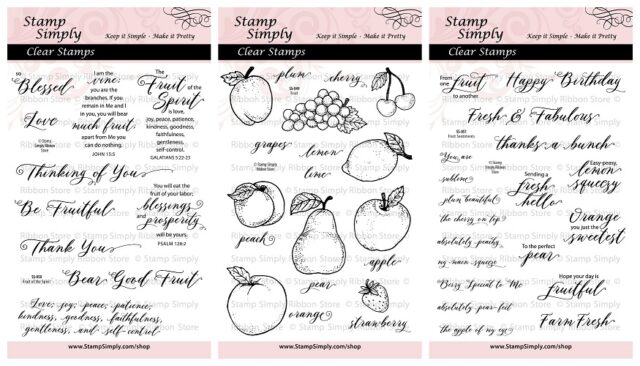 Stamp
Simply
Keep it Simple - Make it Pretty
Clear Stamps
so
Blessed
Love
I am the
vine;
you are the
branches. If you
remain in Me and I
in you, you will bear
much fruit;
apart from Me you
can do nothing.
JOHN 15:5
The
Fruit
of the
Spirit
is love,
joy, peace, patience,
kindness, goodness,
faithfulness,
gentleness,
self-control.
GALATIANS 5:22-23
© Stamp
Simply
Ribbon Store
Thinking of You
Be Fruitful
Thank You
You will eat the
fruit of your labor;
blessings
and
prosperity
will be yours.
PSALM 128:2
SS-050
Fruit of the Spirit
Bear Good Fruit
Love, joy, peace, patience,
kindness, goodness, faithfulness,
gentleness, and self-control
www.StampSimply.com/shop
Stamp
Simply
Keep it Simple - Make it Pretty
Clear Stamps
plum
SS-049
Fruit
cherry
grapes
© Stamp
Simply
Ribbon Store
lemon
lime
peach
pear
apple
orange
strawberry
www.StampSimply.com/shop
Stamp
Simply
Keep it Simple - Make it Pretty
Clear Stamps
From
one
fruit
to another
Happy Birthday
Fresh & Fabulous
SS-051
Fruit Sentiments
thanks a bunch
You are
sublime
plum beautiful
the cherry on top
absolutely peachy
my main squeeze
Berry Special to Me
absolutely pear-fect
the apple of my eye
© Stamp
Simply
Ribbon Store
Sending a
Fresh
hello
Easy-peasy,
lemon
squeezy
Orange
you just the
sweetest
To the perfect
pear
Hope your day is
Fruitful
Farm Fresh
www.StampSimply.com/shop